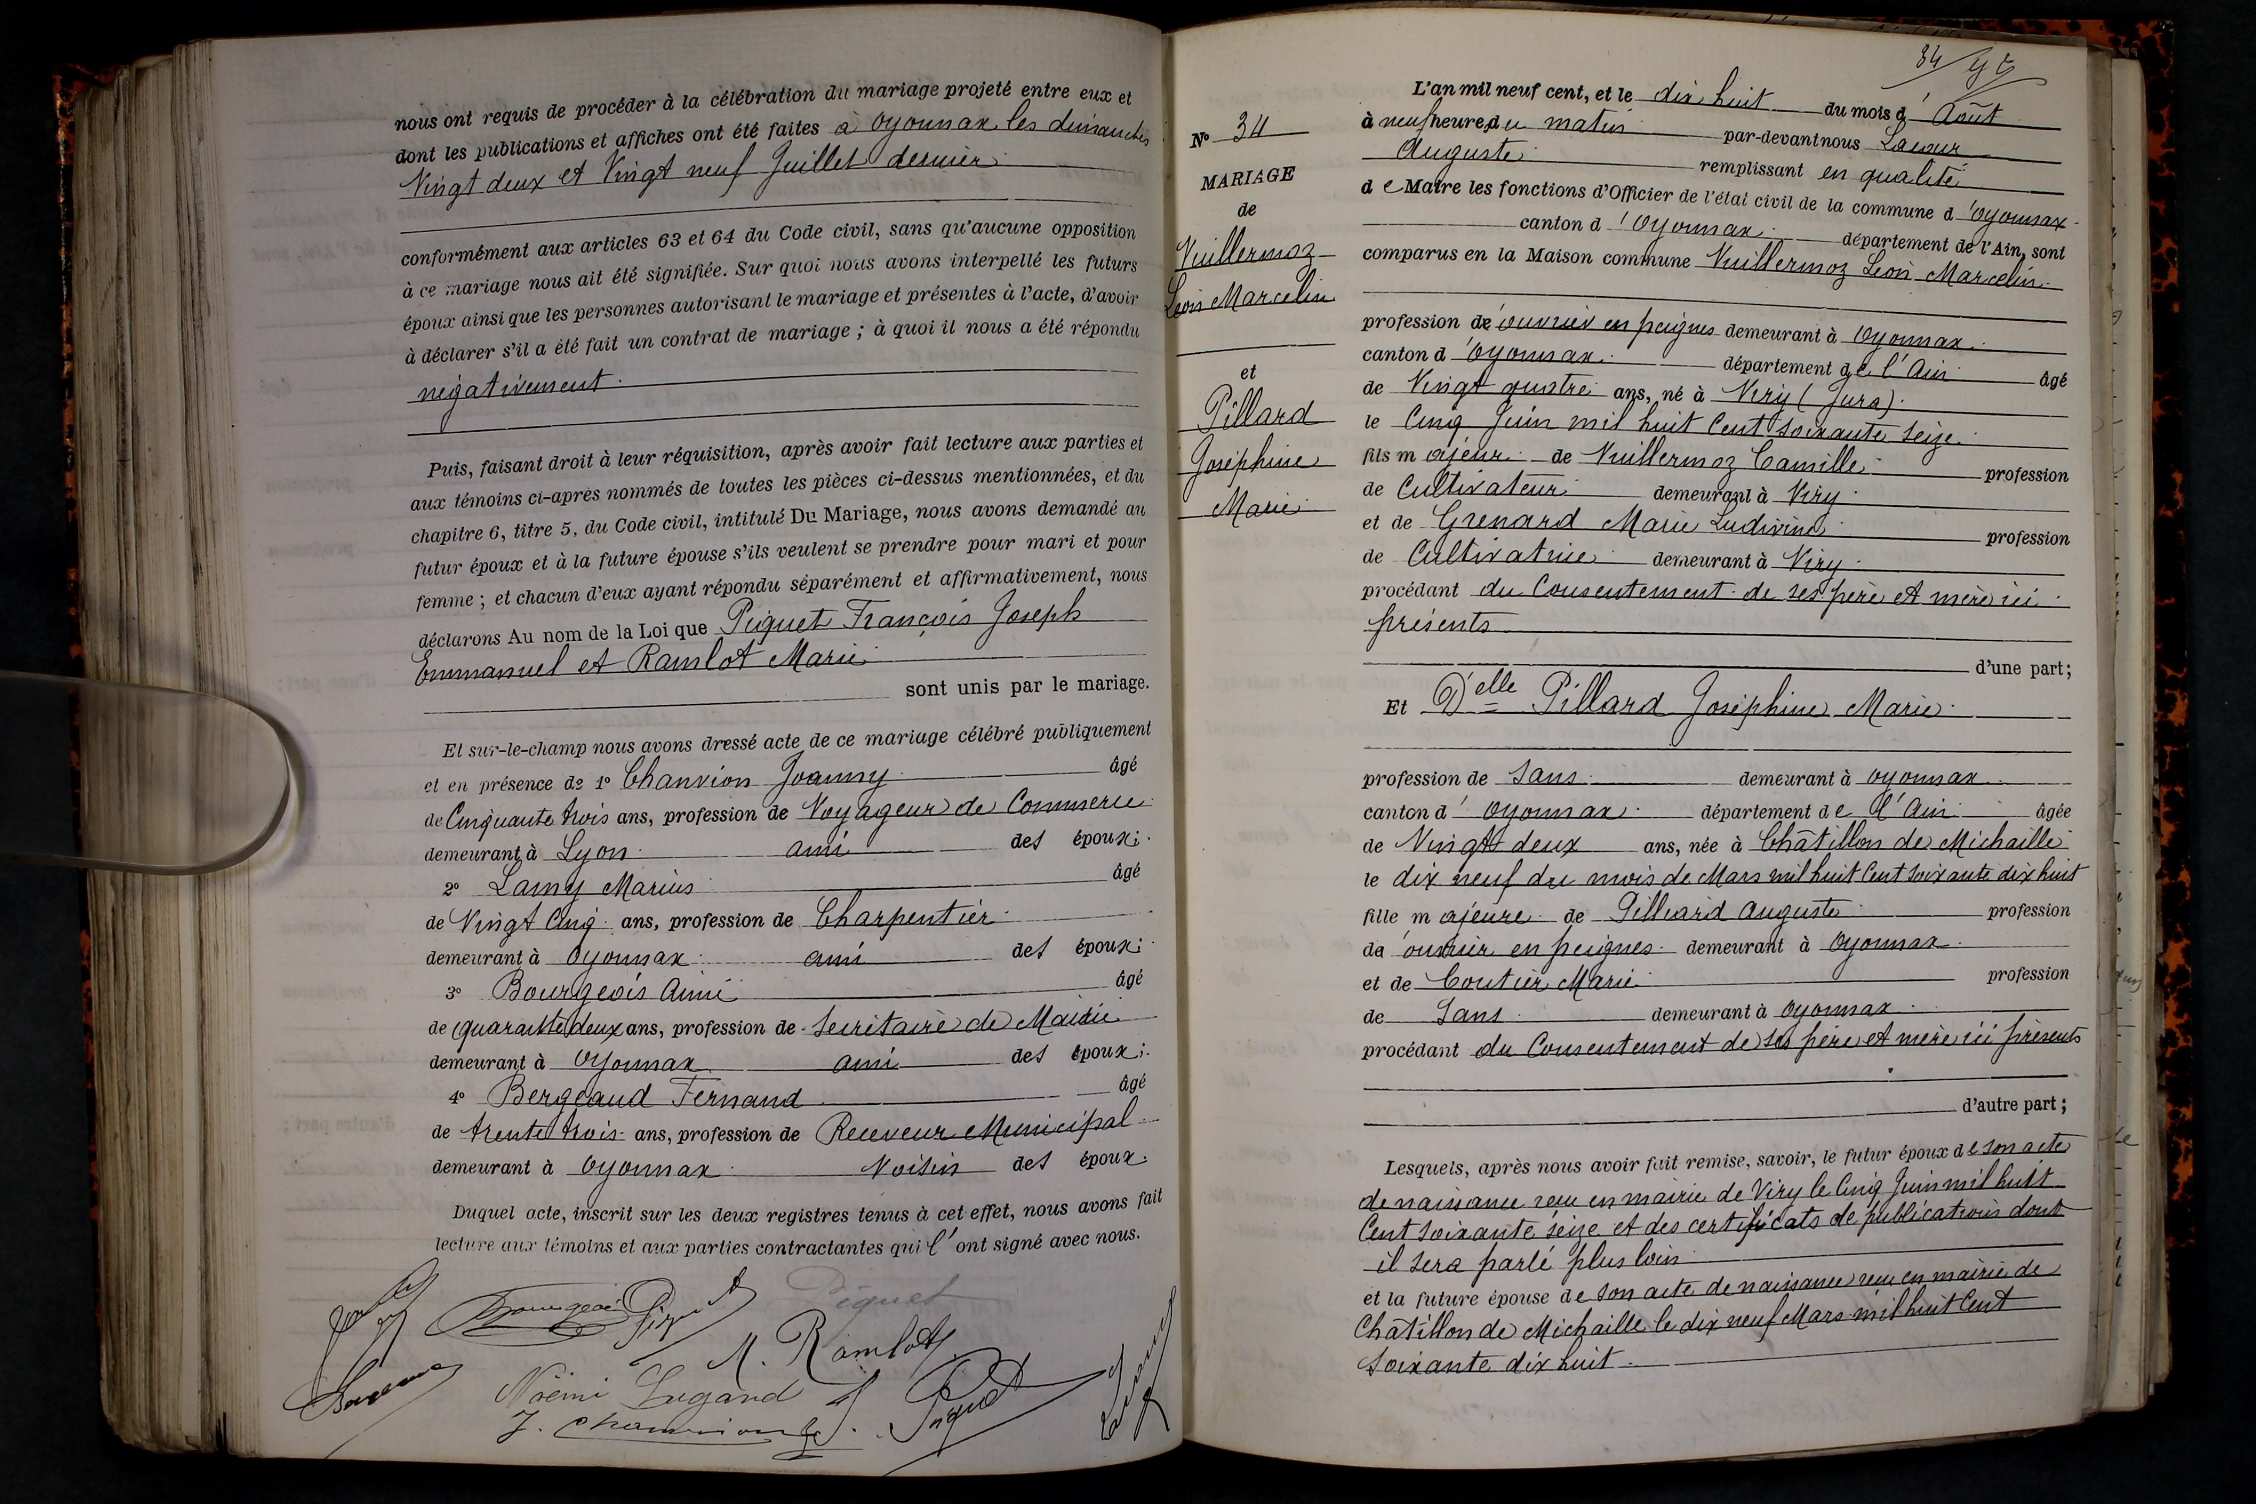 nous ont requis de procéder à la célébration du mariage projeté entre eux et
dont les publications et affiches ont été faites à Oyonnax les dimanches
Vingt deux et Vingt neuf Juillet dernier
conformément aux articles 63 et 64 du Code civil, sans qu'aucune opposition
à ce mariage nous ait été signifiée. Sur quoi nous avons interpellé les futurs
époux ainsi que les personnes autorisant le mariage et présentes à l'acte, d'avoir
à déclarer s'il a été fait un contrat de mariage ; à quoi il nous a été répondu
négativement.
Puis, faisant droit à leur réquisition, après avoir fait lecture aux parties et
aux témoins ci-après nommés de toutes les pièces ci-dessus mentionnées, et du
chapitre 6, titre 5, du Code civil, intitulé Du Mariage, nous avons demandé au
futur époux et à la future épouse s'ils veulent se prendre pour mari et pour
femme ; et chacun d'eux ayant répondu séparément et affirmativement, nous
déclarons Au nom de la Loi que Piquet François Joseph
Emmanuel et Ramlot Marie
sont unis par le mariage.
Et sur-le-champ nous avons dressé acte de ce mariage célébré publiquement
et en présence de 1° Chanvion Joanny âgé
de Cinquante trois ans, profession de Voyageur de Commerce
demeurant à Lyon ami des époux;
2° Lamy Marius âgé
de Vingt Cinq ans, profession de Charpentier
demeurant à Oyonnax ami des époux;
3° Bourgeois Aimé âgé
de quarante deux ans, profession de Secrétaire de Mairie
demeurant à Oyonnax ami des époux;
4° Bergeaud Fernand âgé
de trente trois ans, profession de Receveur Municipal
demeurant à Oyonnax Voisin des époux.
Duquel acte, inscrit sur les deux registres tenus à cet effet, nous avons fait
lecture aux témoins et aux parties contractantes qui l'ont signé avec nous.
Bourgeois Piquet Piquet
M. Ramlot
Noémi Lugand Piquet
J. Chanvion
34
N° 34
MARIAGE
de
Vuillermoz
Léon Marcelin
et
Pillard
Joséphine
Marie
L'an mil neuf cent, et le dix huit du mois d'Août
à neuf heures du matin par-devant nous Lacour
Auguste remplissant en qualité
de Maire les fonctions d'Officier de l'état civil de la commune d'Oyonnax
canton d'Oyonnax département de l'Ain, sont
comparus en la Maison commune Vuillermoz Léon Marcelin
profession d'ouvrier en peignes demeurant à Oyonnax
canton d'Oyonnax département de l'Ain âgé
de Vingt quatre ans, né à Viry (Jura)
le Cinq Juin mil huit Cent soixante seize
fils majeur de Vuillermoz Camille profession
de Cultivateur demeurant à Viry
et de Grenard Marie Ludivine profession
de Cultivatrice demeurant à Viry
procédant du Consentement de ses père et mère ici
présents
d'une part;
Et Delle Pillard Joséphine Marie
profession de Sans demeurant à Oyonnax
canton d'Oyonnax département de l'Ain âgée
de Vingt deux ans, née à Châtillon de Michaille
le dix neuf du mois de Mars mil huit Cent soixante dix huit
fille majeure de Pilliard Auguste profession
d'ouvrier en peignes demeurant à Oyonnax
et de Coutier Marie profession
de Sans demeurant à Oyonnax
procédant du Consentement de ses père et mère ici présents
d'autre part;
Lesquels, après nous avoir fait remise, savoir, le futur époux de son acte
de naissance reçu en mairie de Viry le Cinq Juin mil huit
Cent soixante seize et des certificats de publications dont
il sera parlé plus loin
et la future épouse de son acte de naissance reçu en mairie de
Châtillon de Michaille le dix neuf Mars mil huit Cent
soixante dix huit